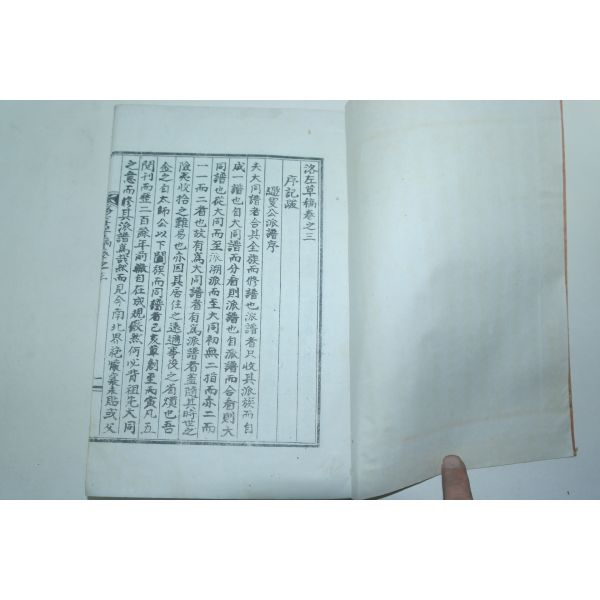 洛左草稿卷之三
序記跋
遯叟公派譜序
夫大同譜者合其全族而修譜也派譜者只收其派族而自
成一譜也自大同譜而分看則派譜也自派譜而合看則大
同譜也從大同而至派溯派而至大同初無二指而亦二而
一一而二者也故有爲大同譜者有爲派譜者盖隨其時世之
險夷收拾之難易也亦因其居住之遠邇事役之省煩也吾
金之自太師公以下闔族而同譜者己亥草創至丙寅凡五
閱刊而歷二百餘年前轍自在成規儼然何必背祖先大同
之意而修其派譜爲哉然而見今南北界